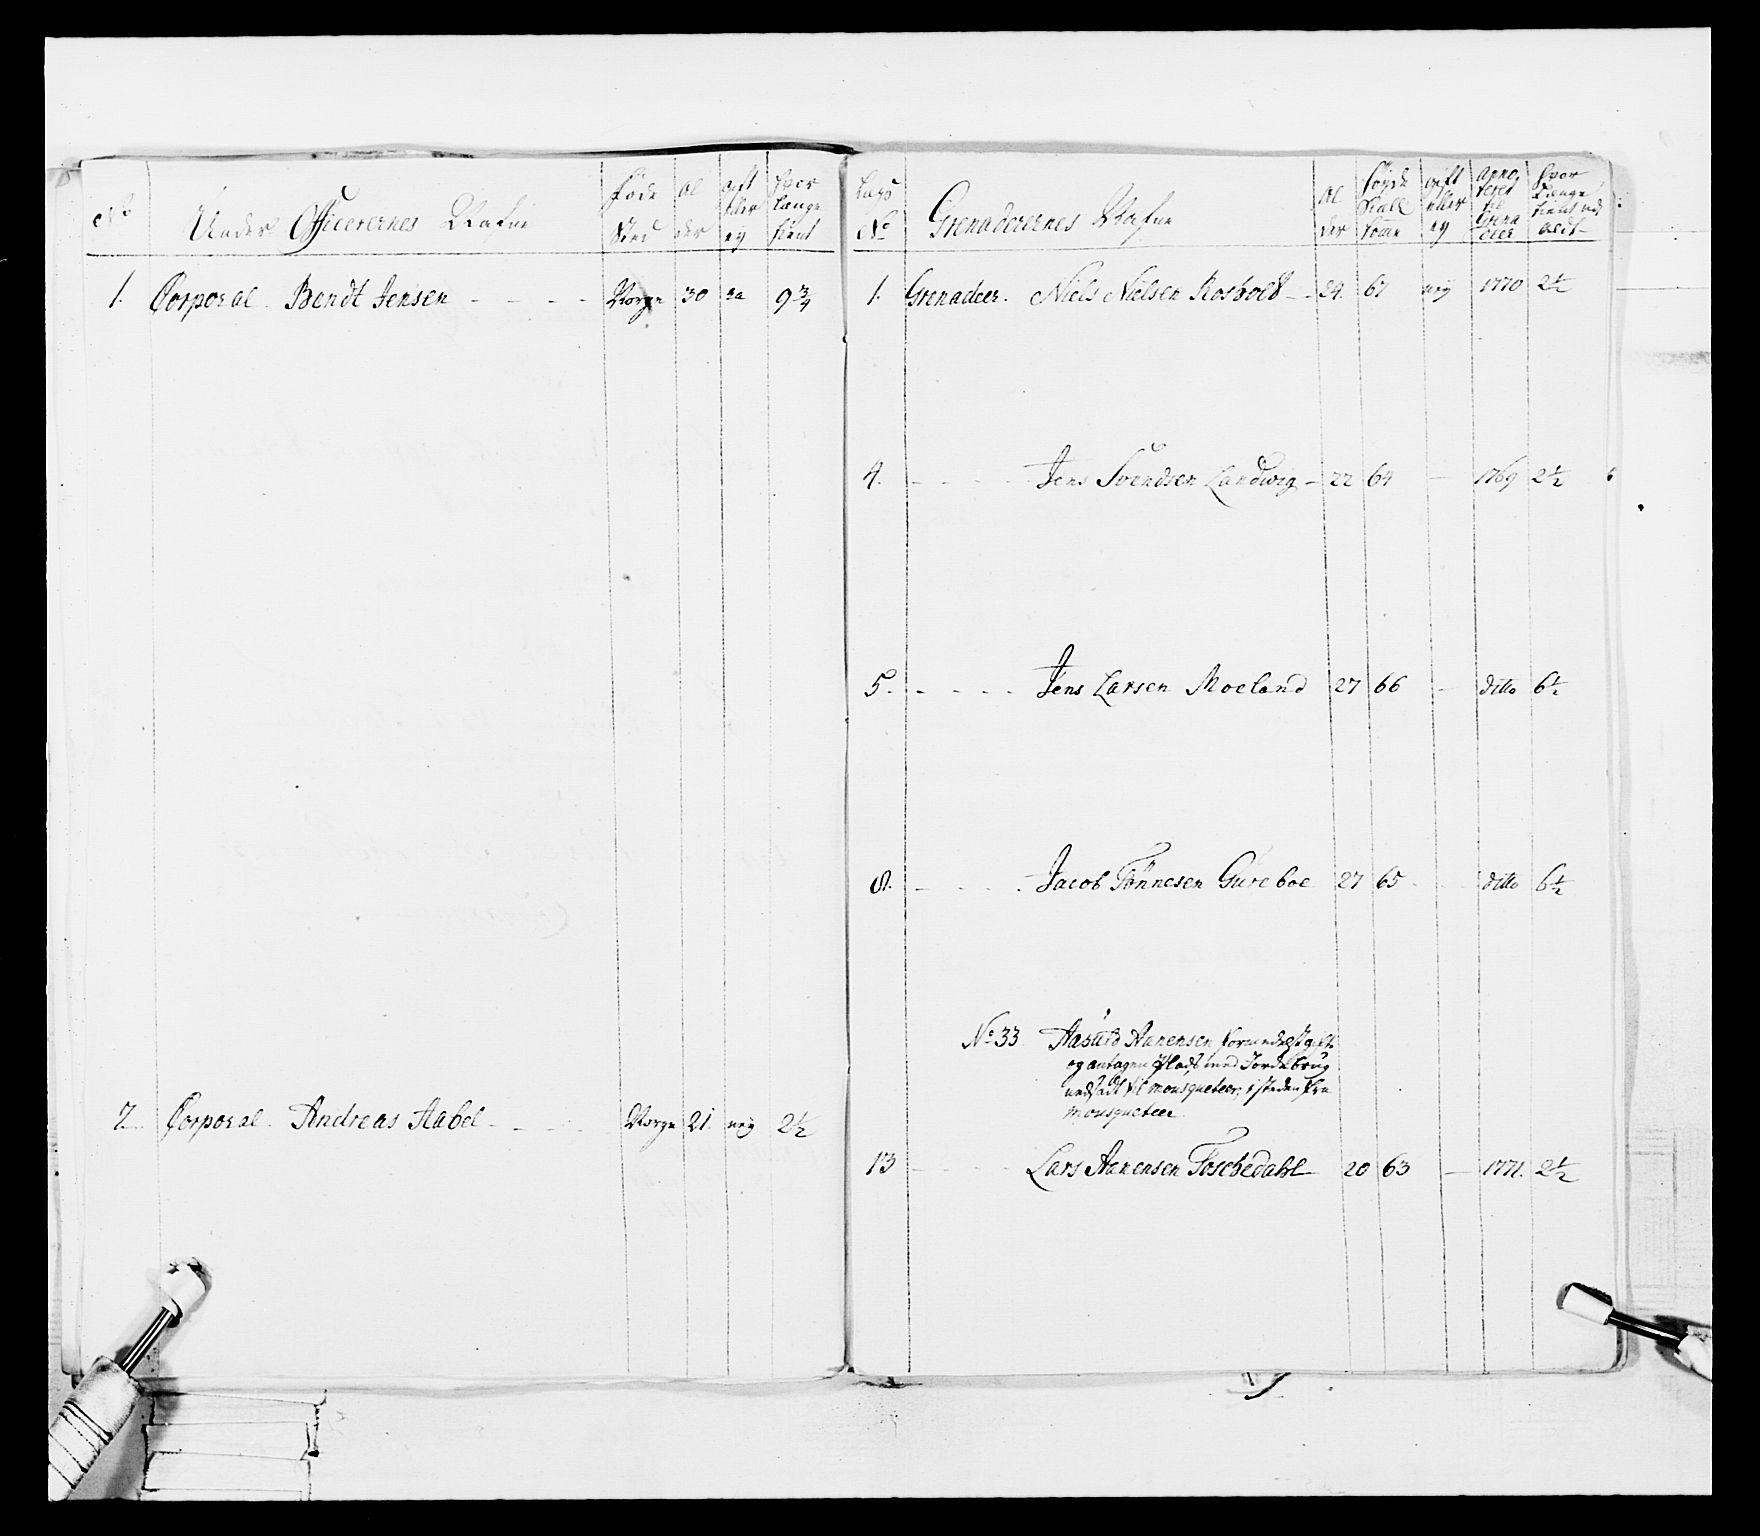 No
Under Officerernes Nafne
Føde Sted
Al der
gift eller ey
hvor længe tient
1. Corporal Bendt Jensen - - - - Norge 30 Ja 9 3/4
2. Corporal Andreas Aabel - - - Norge 21 ney 2 1/2
Laugs No
Grenaderernes Nafne
Al der
Høyde Sæll Tome
gift eller ey
til Grena deer
hvor længe tient
1. Grenadeer. Niels Nielsen Rosvold - - 24 67 ney 1770 2 1/2
4. - - - - Jens Svendsen Landwig - 22 64 - 1769 2 1/2
5. - - - - Jens Larsen Moeland 27 66 - ditto 6 1/2
8. - - - - Jacob Tønnesen Gureboe 27 65 - - ditto 6 1/2
No 33 Aasuld Aanensen formedelst gift
og antagen Plads med Jordebrug
nedsadt til mousqueteer, i steden fra
Mousqueteer
13 - - - - Lars Aanensen Foschedahl 20 63 - 1771. 2 1/2